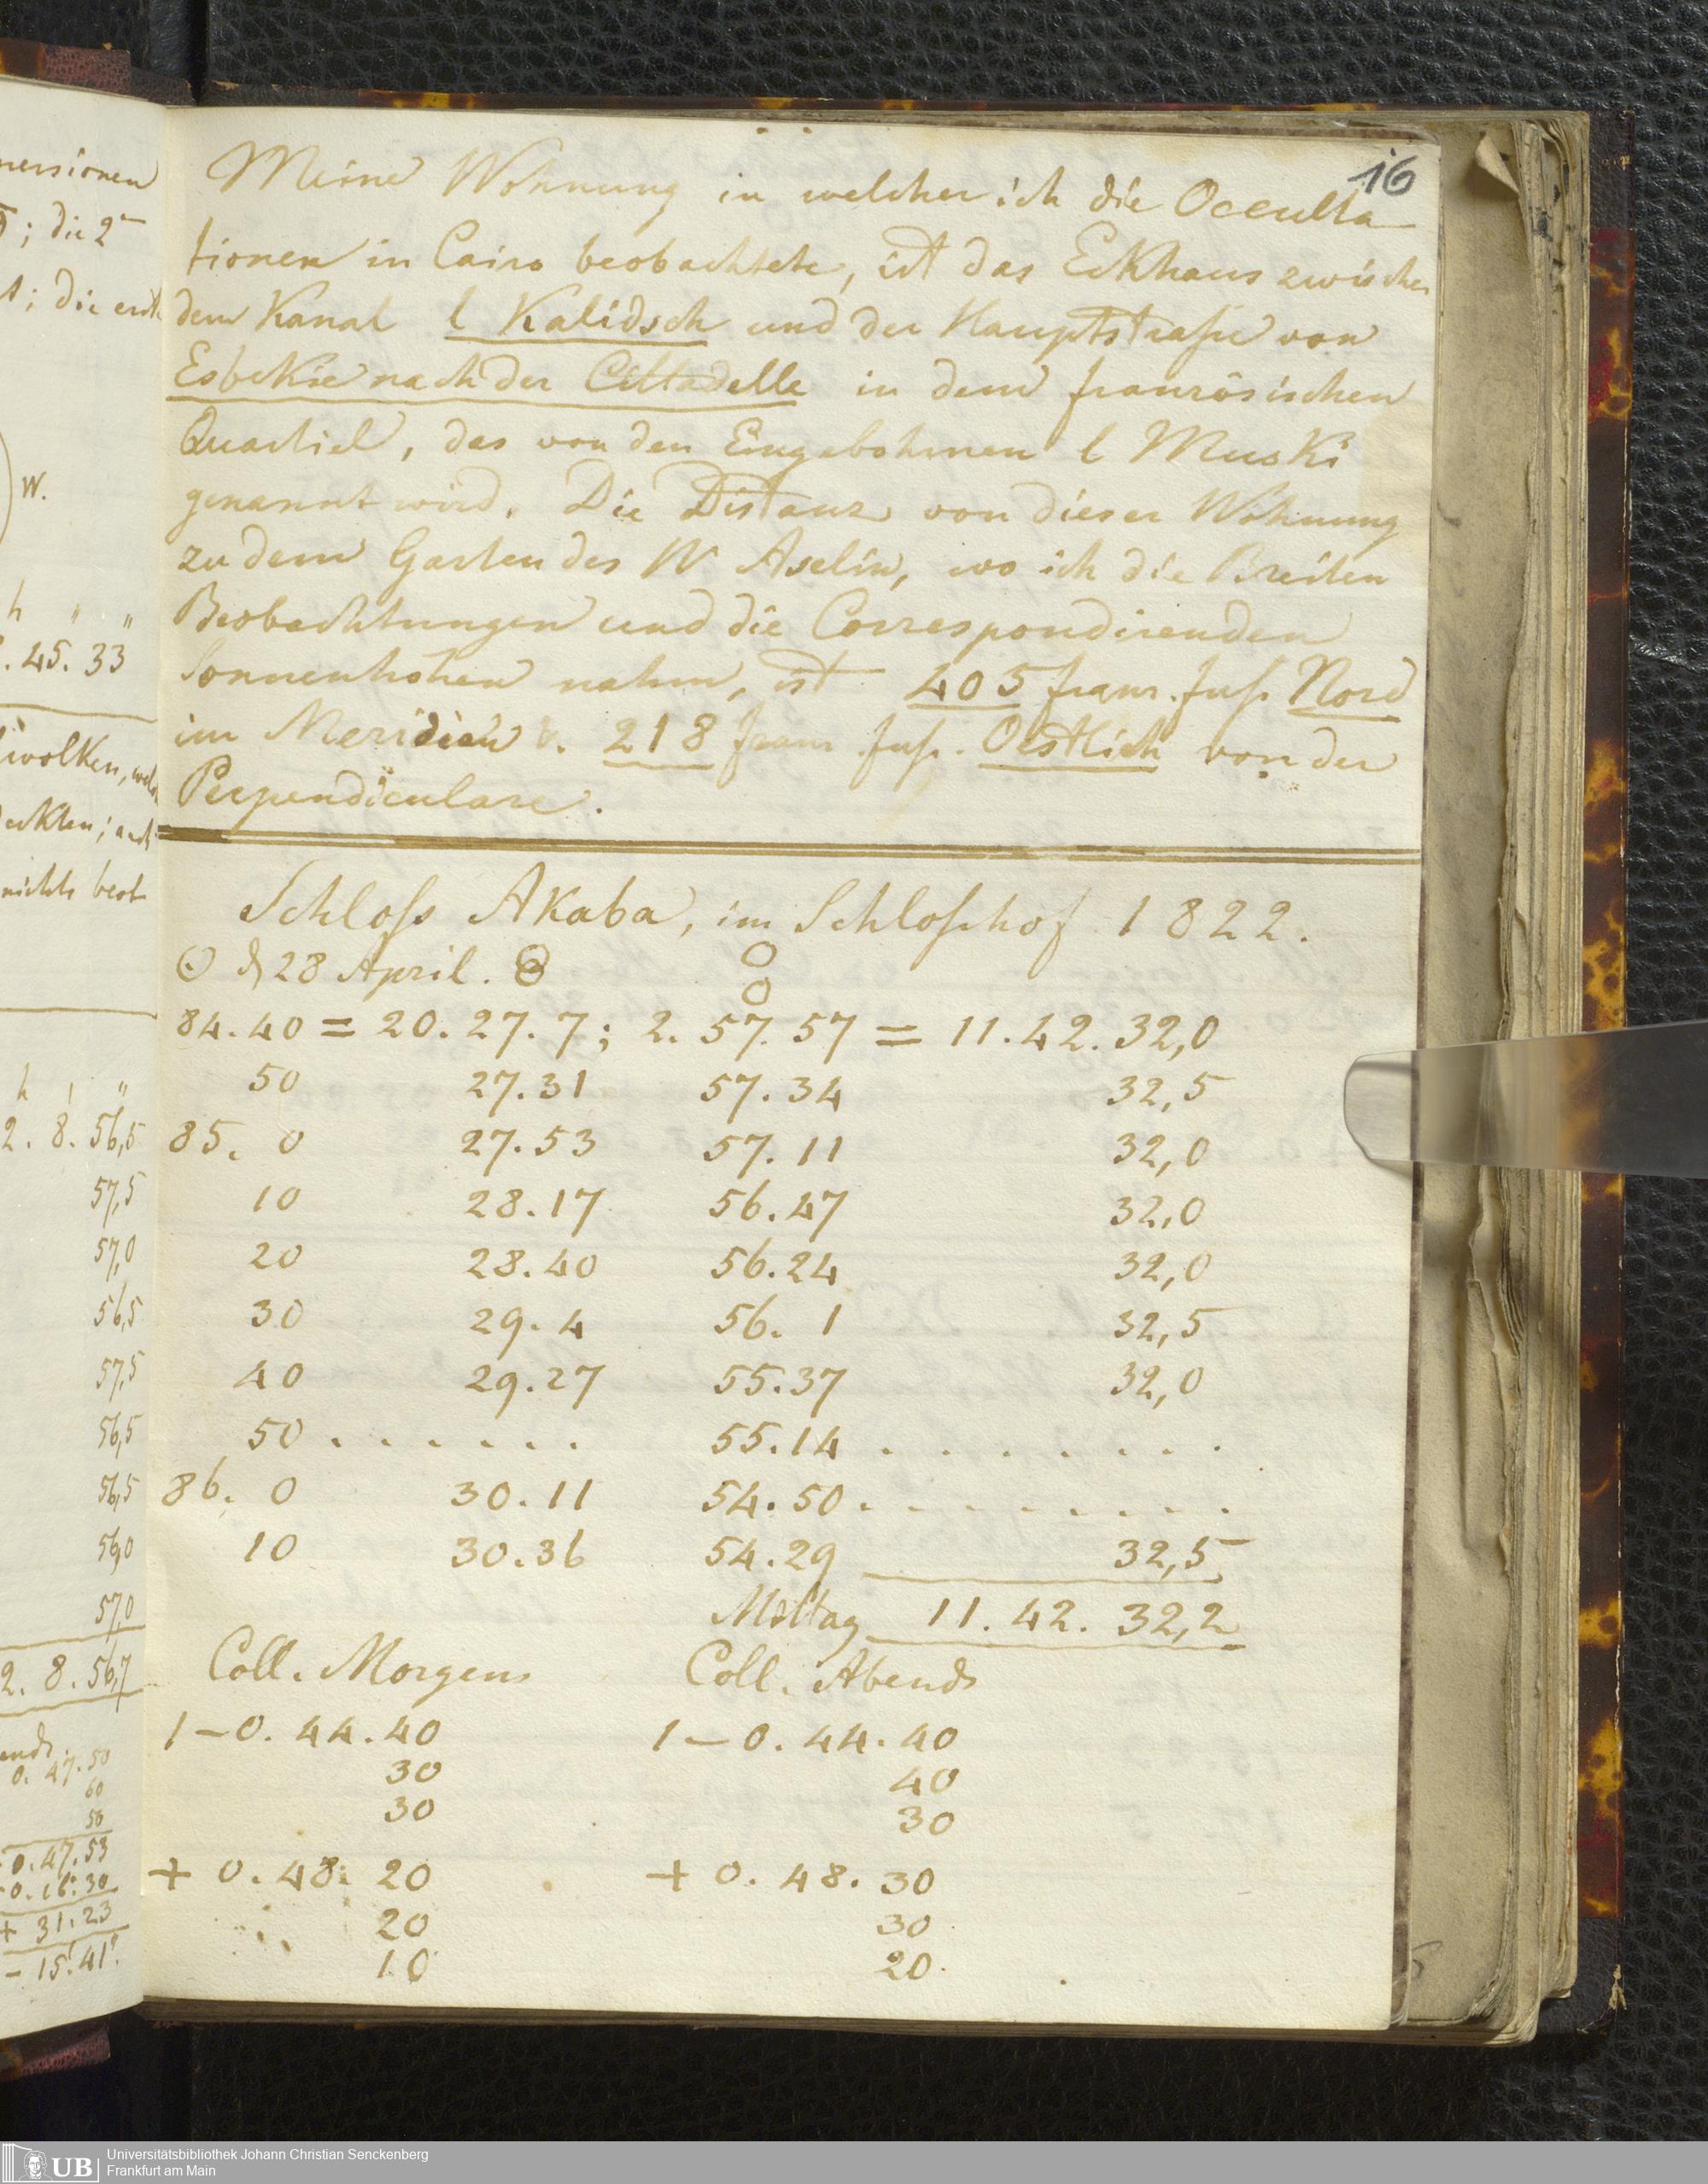 nersionen
; die 2
; die erste
W.
h " "
. 45. 33
wolken, welch
deckten; auch
nichts beob
h ' "
2. 8. 56,5
57,5
57,0
56,5
57,5
56,5
56,5
56,0
57,0
2. 8. 56,7
0. 47. 50
60
50
0. 47. 53
0. 16. 30
+ 31. 23
- 15' 41"
16
Meine Wohnung in welcher ich die Occulta
tionen in Cairo beobachtete, ist das Eckhaus zwischen
dem Kanal l Kalidsch und der Hauptstraße von
Esbekie nach der Cittadelle in dem französischen
Quartiel, das von den Eingebohrnen l Muski
genannt wird. Die Distanz von dieser Wohnung
zu dem Garten des Aselin, wo ich die Breiten
Beobachtungen und die Correspondirenden
Sonnenhöhen nahm, ist 405 franz. Fuß. Nord
im Meridian u. 218 franz Fuß. Oestlich von der
Perpendiculare.
Schloß Akaba, im Schloßhof 1822.
☉ d 28 April.
84. 40 = 20. 27. 7; 2. 57. 57 = 11. 42. 32,0
50 27. 31 57. 34 32,5
85. 0 27. 53 57. 11 32,0
10 28. 17 56. 47 32,0
20 28. 40 56. 24 32,0
30 29. 4 56. 1 32,5
40 29. 27 55. 37 32,0
50 . . . . . . 55. 14 . . . . . . . .
86. 0 30. 11 54. 50 . . . . . . . . .
10 30. 36 54. 29 32,5
Mittag 11. 42. 32,2
Coll. Morgens Coll. Abends
1 - 0. 44. 40 1 - 0. 44. 40
30 40
30 30
+ 0. 48. 20 + 0. 48. 30
20 30
10 20
UB Universitätsbibliothek Johann Christian Senckenberg
Frankfurt am Main